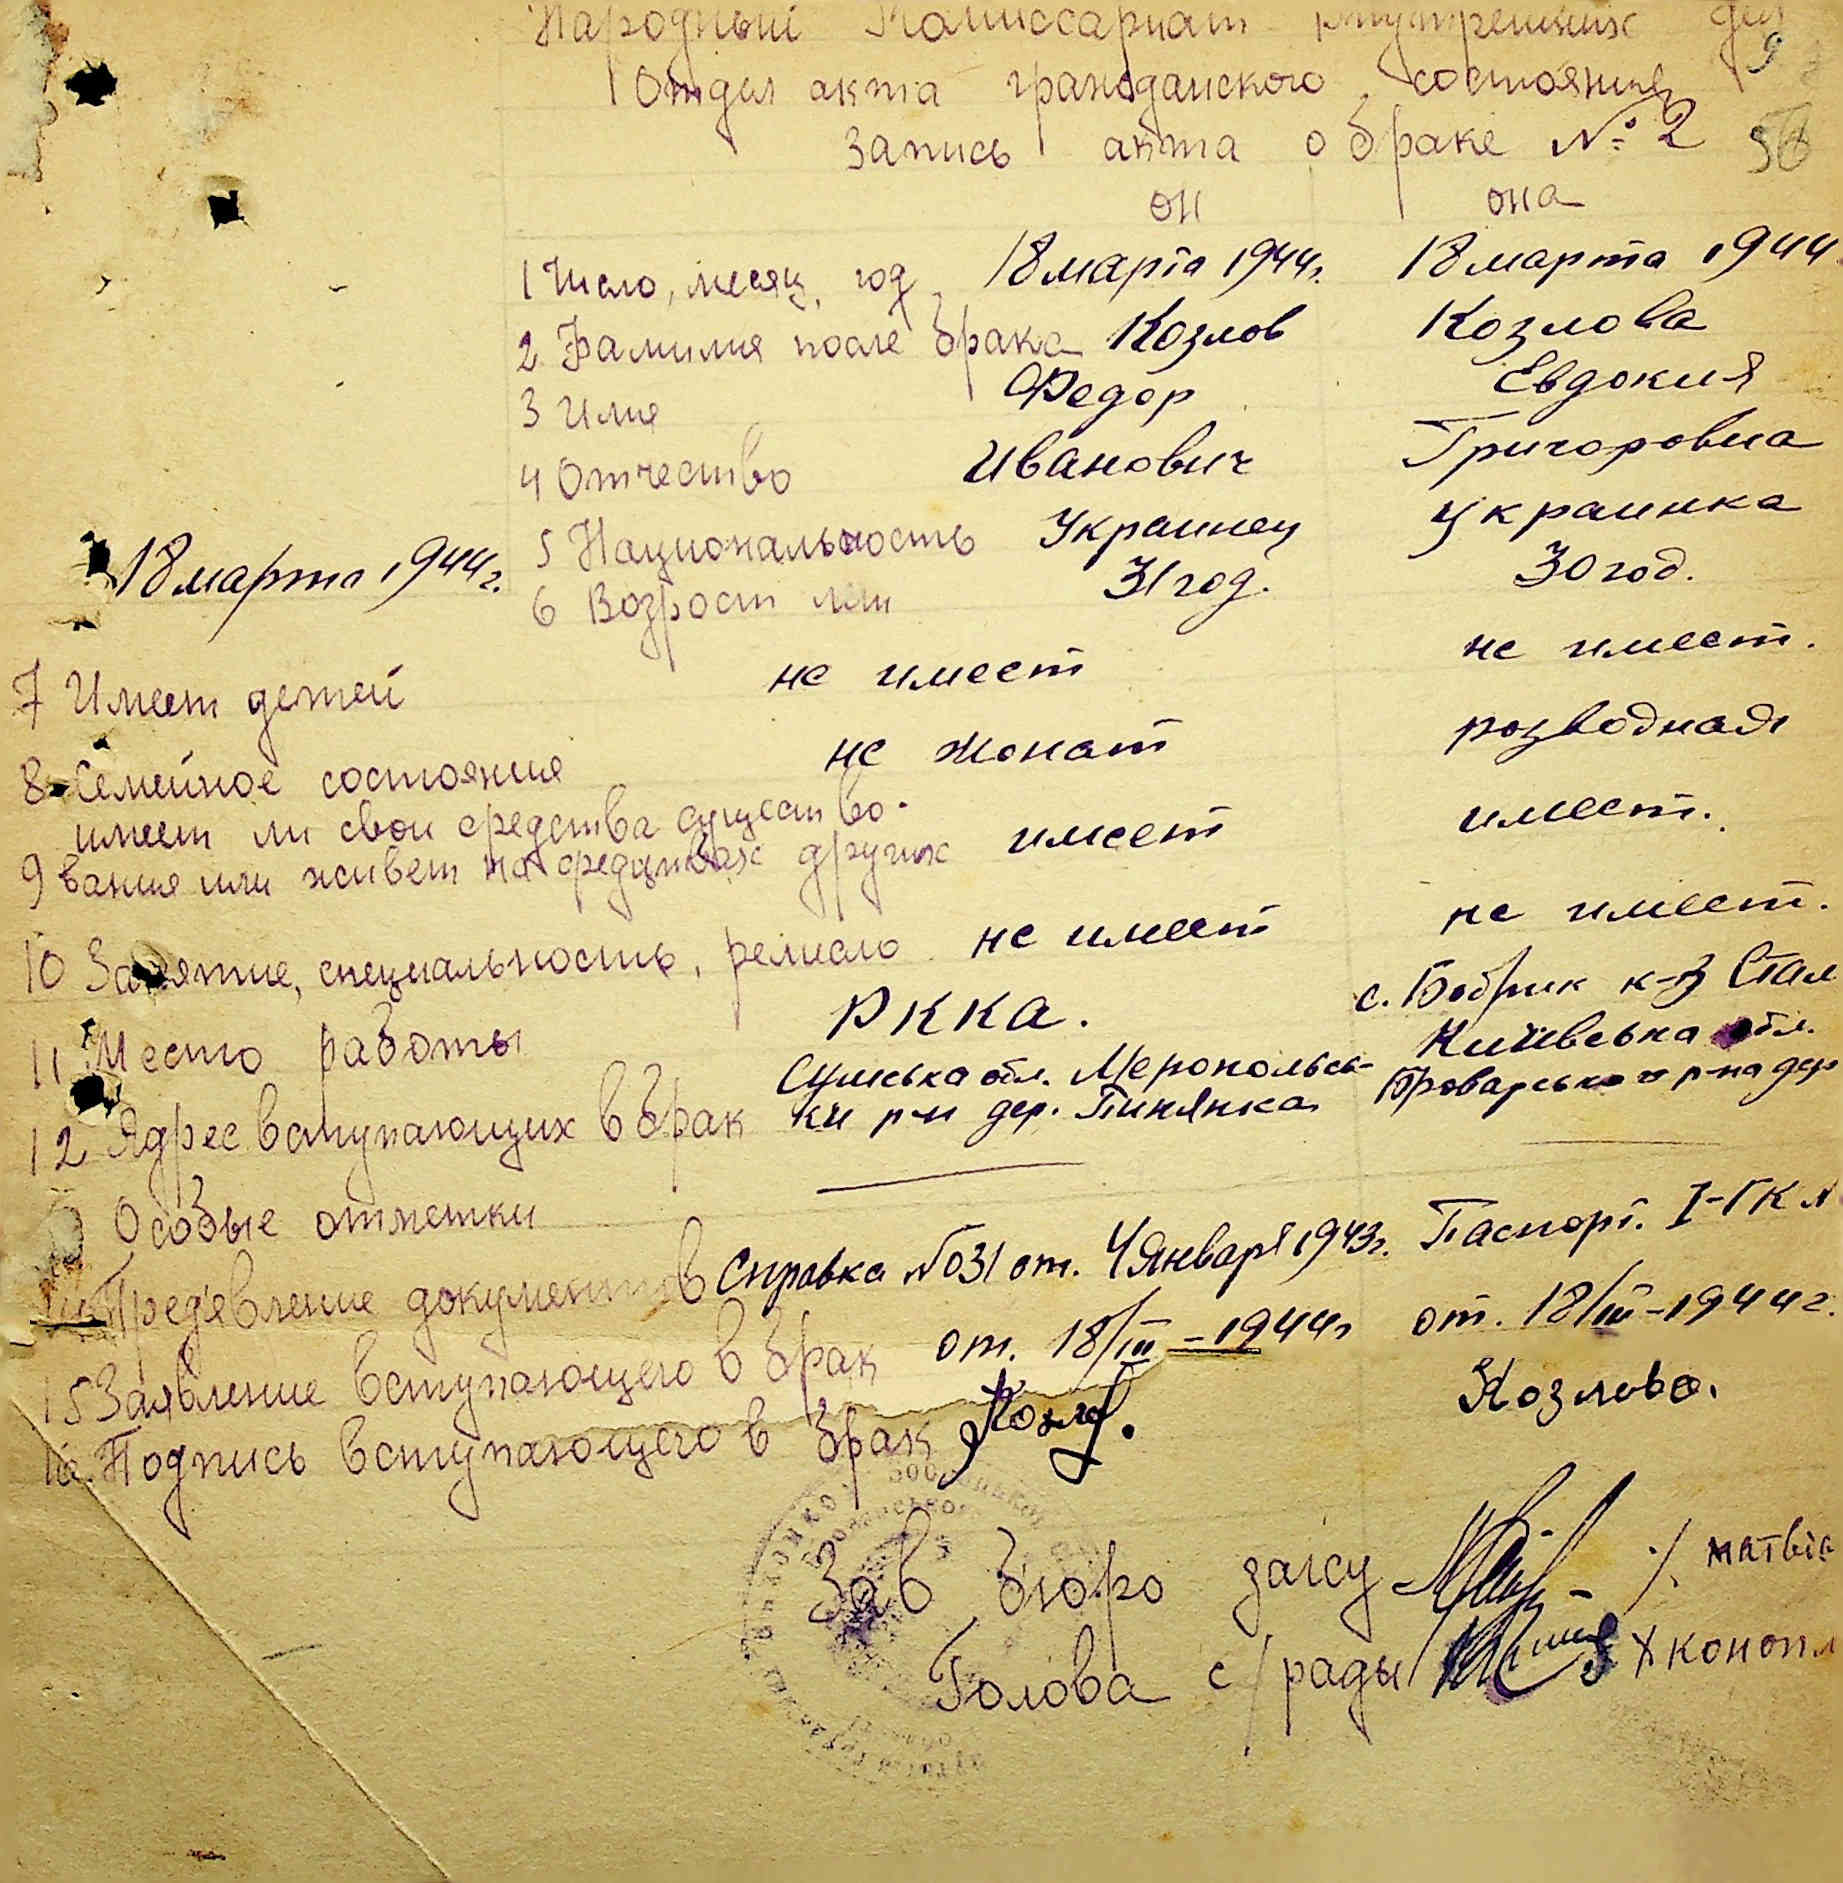 Народный Комиссариат внутренних дел
Отдел акта гражданского состояния
9
Запись акта о браке № 2
56
он она
1 Число, месяц, год 18 марта 1944г. 18 марта 1944
2 Фамилия после брака Козлов Козлова
3 Имя Федор Евдокия
4 Отчество Иванович Григоровна
18 марта 1944г.
5 Национальность Украинец украинка
6 Возрост лет 31 год. 30 год.
7 Имеет детей не имеет не имеет.
8 Семейное состояния не жонат розводная
имеет ли свои средства существо-
9 вания или живет на средствах других имеет имеет.
10 Занятие, специальность, ремисло не имеет не имеет.
11 Место работы РККА. с. Бобрик к-з Стал
12 Адрес вступающих в брак Сумська обл. Меропольсь-ки р-н дер. Пинянка Київська обл. Броварського р-на дер
Особые отметки
Предевление документов Справка №031 от. 4 Января 1943г. Паспорт. I-ГК
15 Заявление вступающего в брак от. 18/III-1944г от. 18/III-1944г.
16. Подпись вступающего в брак Козлова.
Зав бюро загсу матвіє
Голова с/рады конопл